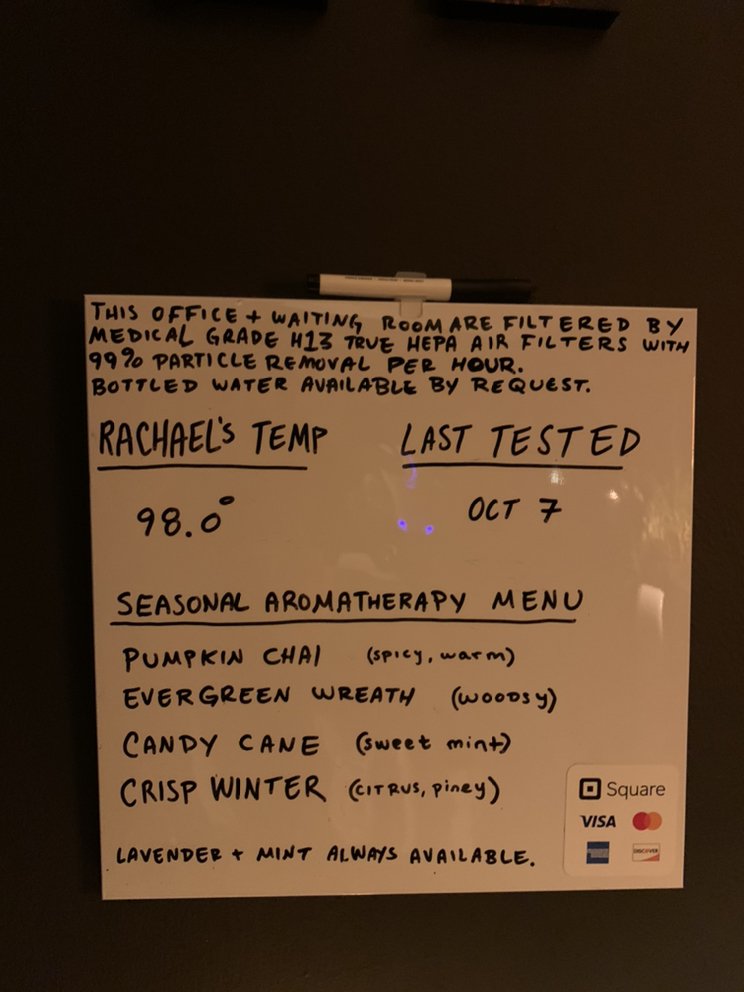 THIS OFFICE + WAITING ROOM ARE FILTERED BY
MEDICAL GRADE H13 TRUE HEPA AIR FILTERS WITH
99% PARTICLE REMOVAL PER HOUR.
BOTTLED WATER AVAILABLE BY REQUEST.
RACHAEL'S TEMP
LAST TESTED
98.0°
OCT 7
SEASONAL AROMATHERAPY MENU
PUMPKIN CHAI (spicy, warm)
EVERGREEN WREATH (WOODSY)
CANDY CANE (sweet mint)
CRISP WINTER (CITRUS, piney)
LAVENDER + MINT ALWAYS AVAILABLE.
Square
VISA
DISCOVER